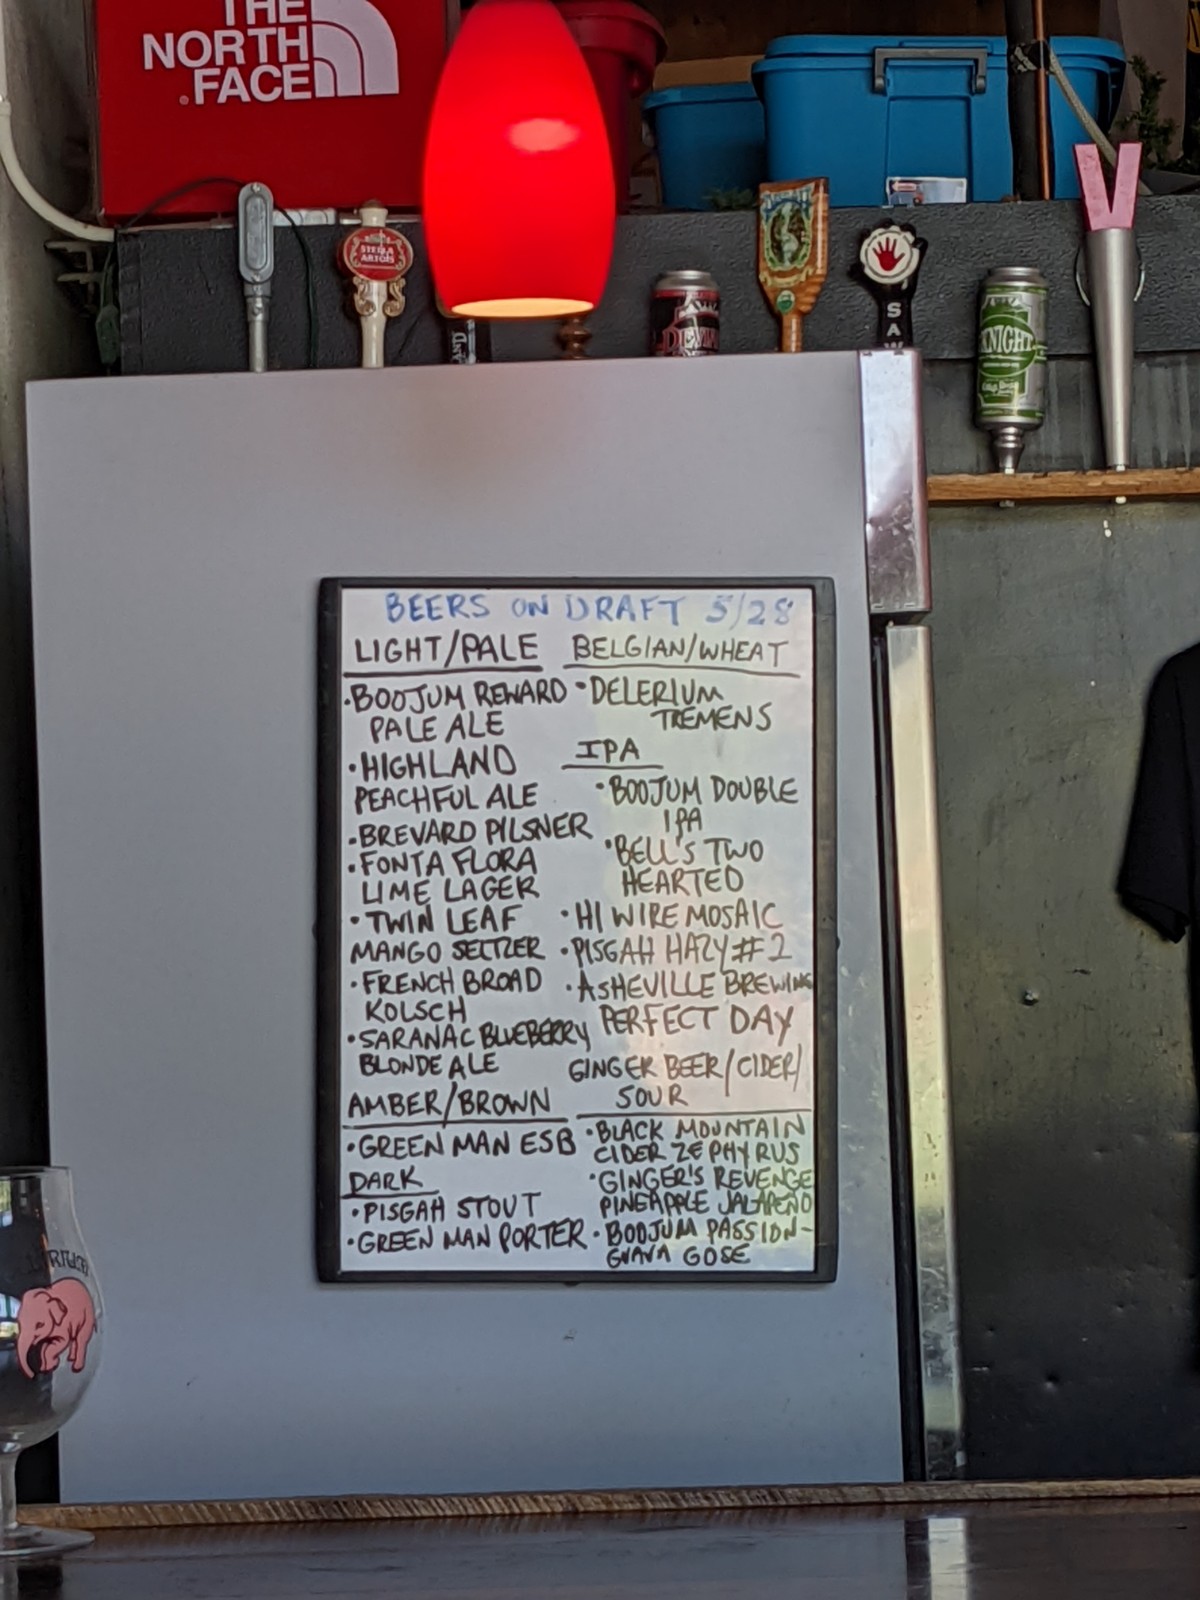 THE
NORTH
FACE
STELLA
ARTOIS
SAW
KNIGHT
BEERS ON DRAFT 5/28
LIGHT/PALE
•BOOJUM REWARD
PALE ALE
•HIGHLAND
PEACHFUL ALE
•BREVARD PILSNER
•FONTA FLORA
LIME LAGER
•TWIN LEAF
MANGO SELTZER
•FRENCH BROAD
KOLSCH
•SARANAC BLUEBERRY
BLONDE ALE
AMBER/BROWN
•GREEN MAN ESB
DARK
•PISGAH STOUT
•GREEN MAN PORTER
BELGIAN/WHEAT
•DELERIUM
TREMENS
IPA
•BOOJUM DOUBLE
IPA
•BELL'S TWO
HEARTED
•HI WIRE MOSAIC
•PISGAH HAZY #2
•ASHEVILLE BREWING
PERFECT DAY
GINGER BEER/CIDER/
SOUR
•BLACK MOUNTAIN
CIDER ZEPHYRUS
•GINGER'S REVENGE
PINEAPPLE JALAPEÑO
•BOOJUM PASSION-
GUAVA GOSE